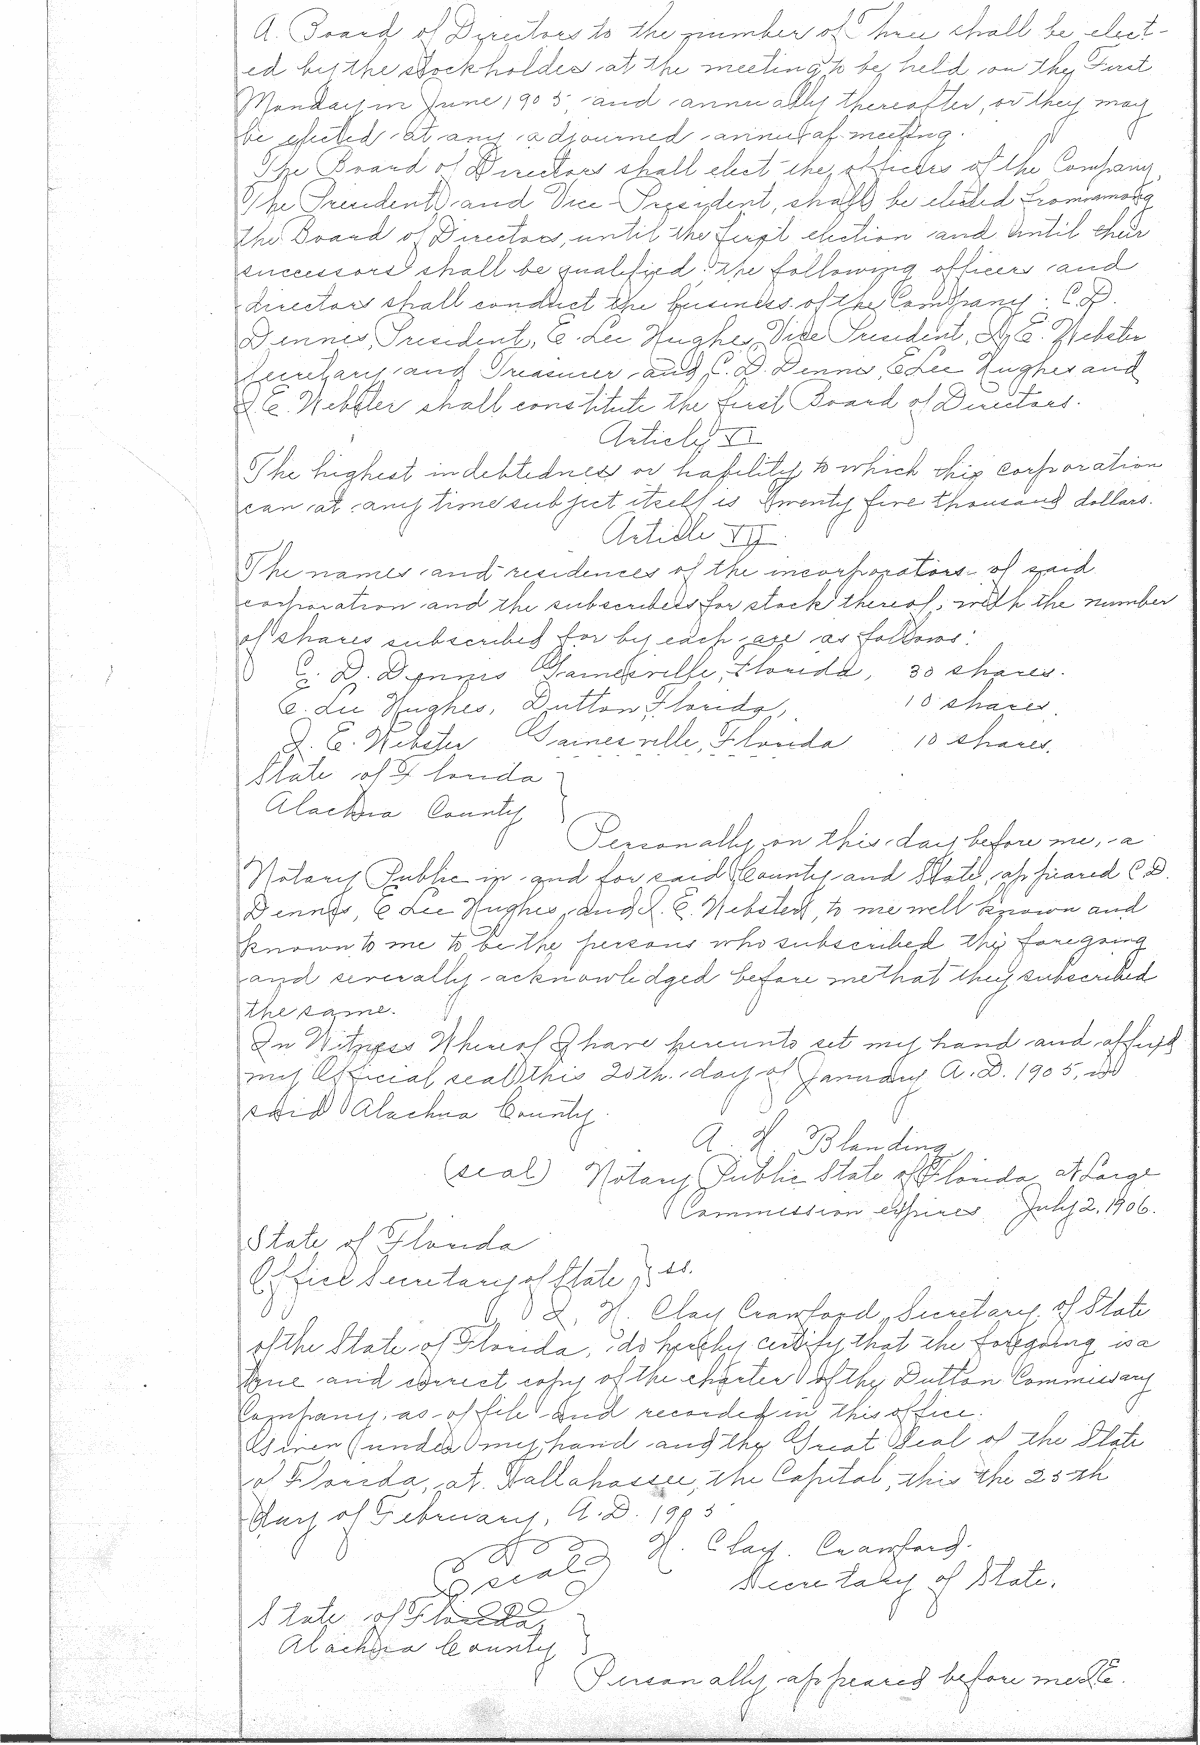 A. Board of Directors to the number of Three shall be elect-
ed by the stockholders at the meeting to be held on the First
Monday in June 1905, and annually thereafter, or they may
be elected at any adjourned annual meeting.
The Board of Directors shall elect the officers of the Company,
The President and Vice-President, shall be elected from among
the Board of Directors, until the first election and until their
successors shall be qualified, the following officers and
directors shall conduct the business of the Company. C.D.
Dennis, President, E. Lee Hughes, Vice President, J. E. Webster
Secretary and Treasurer and C. D. Dennis, E Lee Hughes and
J. E. Webster shall constitute the first Board of Directors.
Article VI
The highest indebtedness or liability to which this corporation
can at any time subject itself is twenty five thousand dollars.
Article VII
The names and residences of the incorporators of said
corporation and the subscribers for stock thereof, with the number
of shares subscribed for by each are as follows:
C. D. Dennis Gainesville, Florida, 30 shares.
E. Lee Hughes, Dutton, Florida, 10 shares.
J. E. Webster Gainesville, Florida 10 shares.
State of Florida }
Alachua County }
Personally on this day before me, a
Notary Public in and for said County and State, appeared C.D.
Dennis, E Lee Hughes, and J. E. Webster, to me well known and
known to me to be the persons who subscribed the foregoing
and severally acknowledged before me that they subscribed
the same.
In Witness Whereof I have hereunto set my hand and affixed
my Official seal this 20th. day of January A.D. 1905, in
said Alachua County.
A. H. Blanding
(seal) Notary Public State of Florida at Large
Commission expires July 2, 1906.
State of Florida
Office Secretary of State, } ss.
I, H. Clay Crawford, Secretary of State
of the State of Florida, do hereby certify that the foregoing is a
true and correct copy of the charter of the Dutton Commissary
Company, as of file and recorded in this office.
Given under my hand and the Great Seal of the State
of Florida, at Tallahassee, the Capital, this the 25th
day of February, A.D. 1905
H. Clay. Crawford.
seal Secretary of State.
State of Florida, }
Alachua County }
Personally appeared before me J. E.